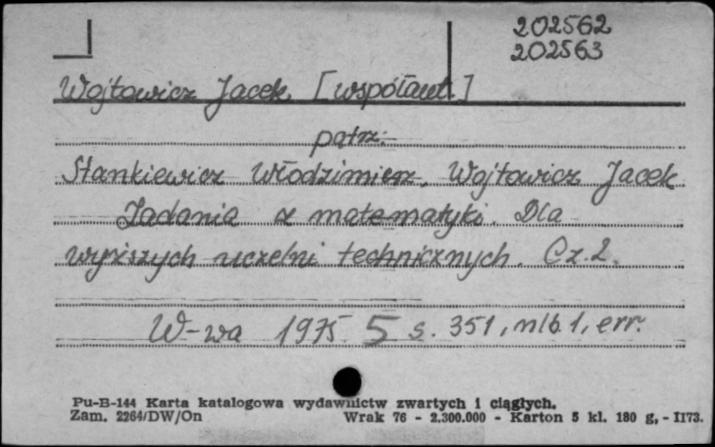 202562
202563
Wojtowicz Jacek [współaut.]
patrz:
Stankiewicz Włodzimierz, Wojtowicz Jacek
Zadania z matematyki. Dla
wyższych uczelni technicznych. Cz. 2.
W-wa 1975 5 s. 351, nlb 1, err.
Pu-B-144 Karta katalogowa wydawnictw zwartych i ciągłych.
Zam. 2264/DW/On Wrak 76 - 2.300.000 - Karton 5 kl. 180 g, - II73.